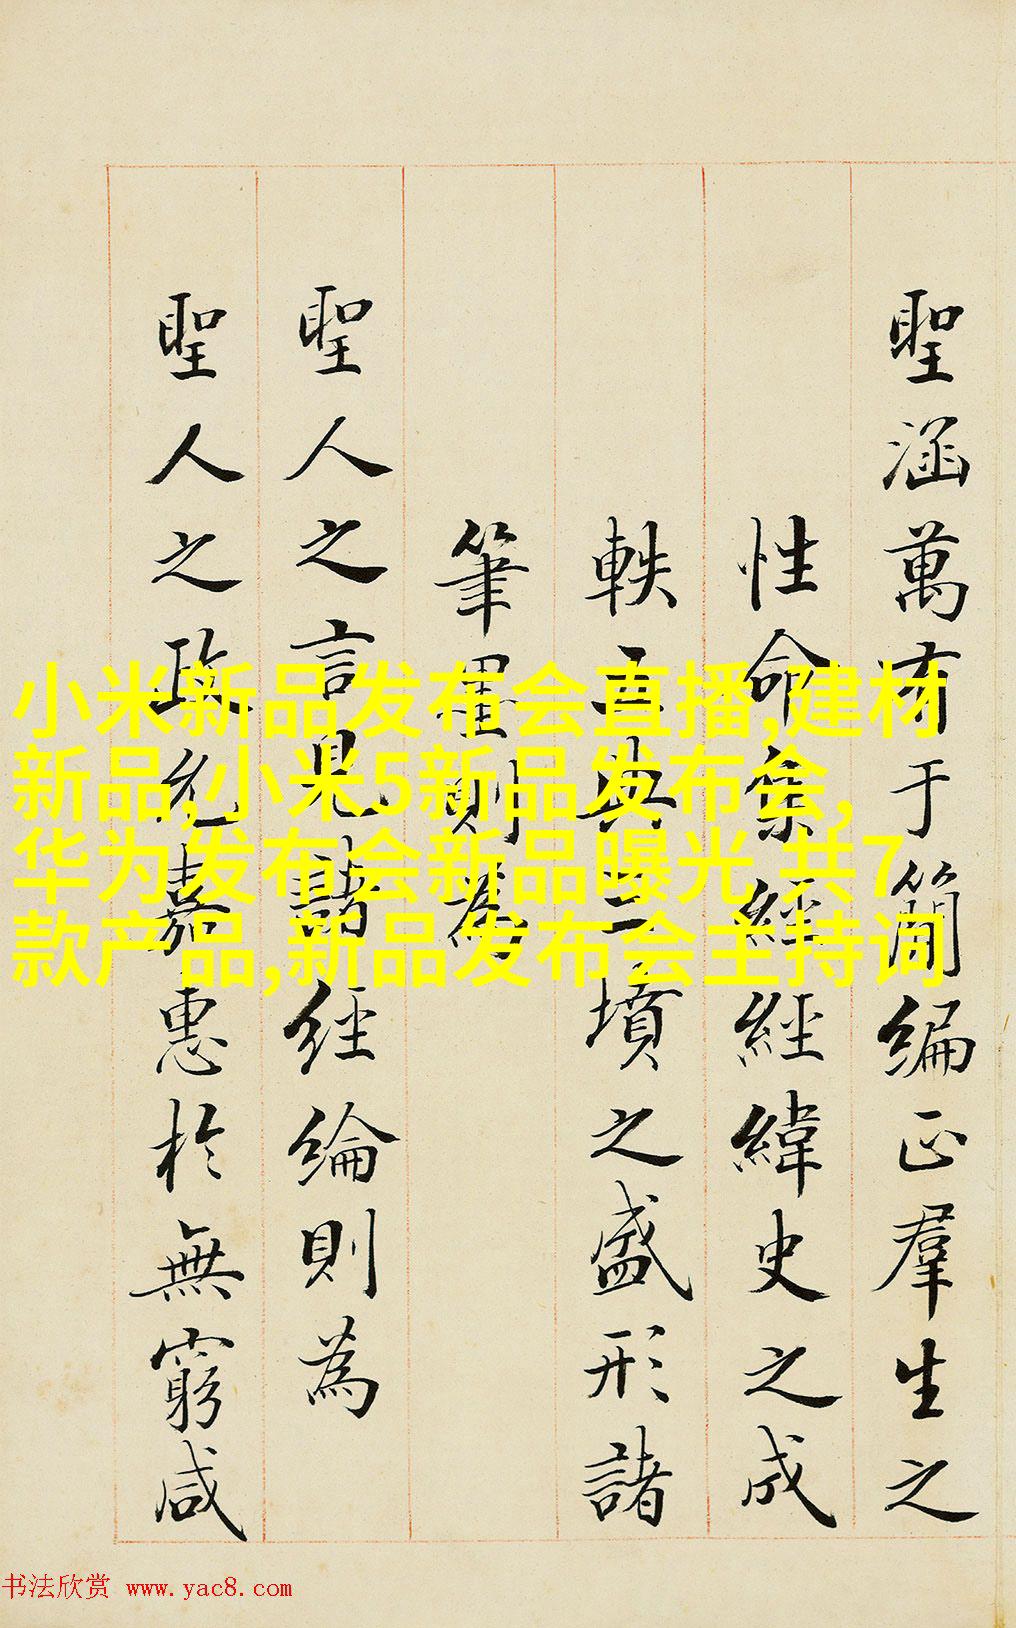 聖涵萬有于簡編正羣生之
性命集經經緯史之成
軼五典三墳之盛形諸
筆墨則為
聖人之言見諸經綸則為
聖人之政允嘉惠於無窮咸
小米新品发布会直播,建材
新品,小米5新品发布会,
华为发布会新品曝光,共7
款产品,新品发布会主持词
书法欣赏 www.yac8.com